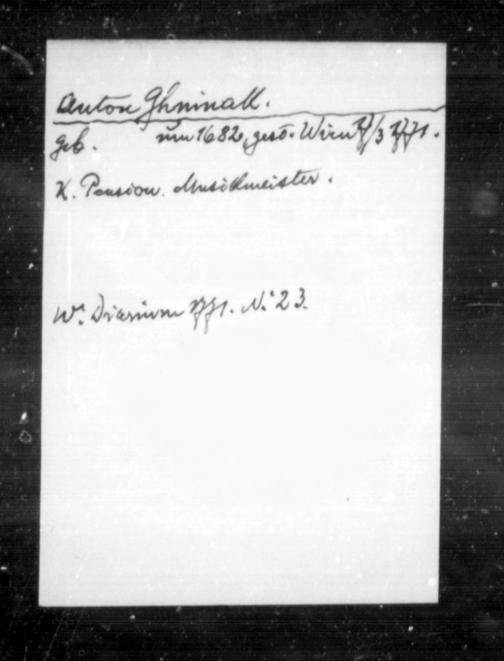 Anton Ghninall.
geb. um 1682, gest. Wien 17/3 1771.
K. Pension. Musikmeister.
Wr. Diarium 1771. No. 23.